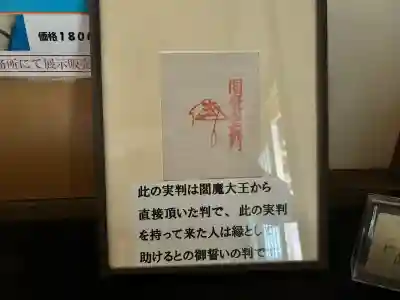 価格180
務所にて展示販売
此の実判は閻魔大王から
直接頂いた判で、此の実判
を持って来た人は縁とし
助けるとの御誓いの判で